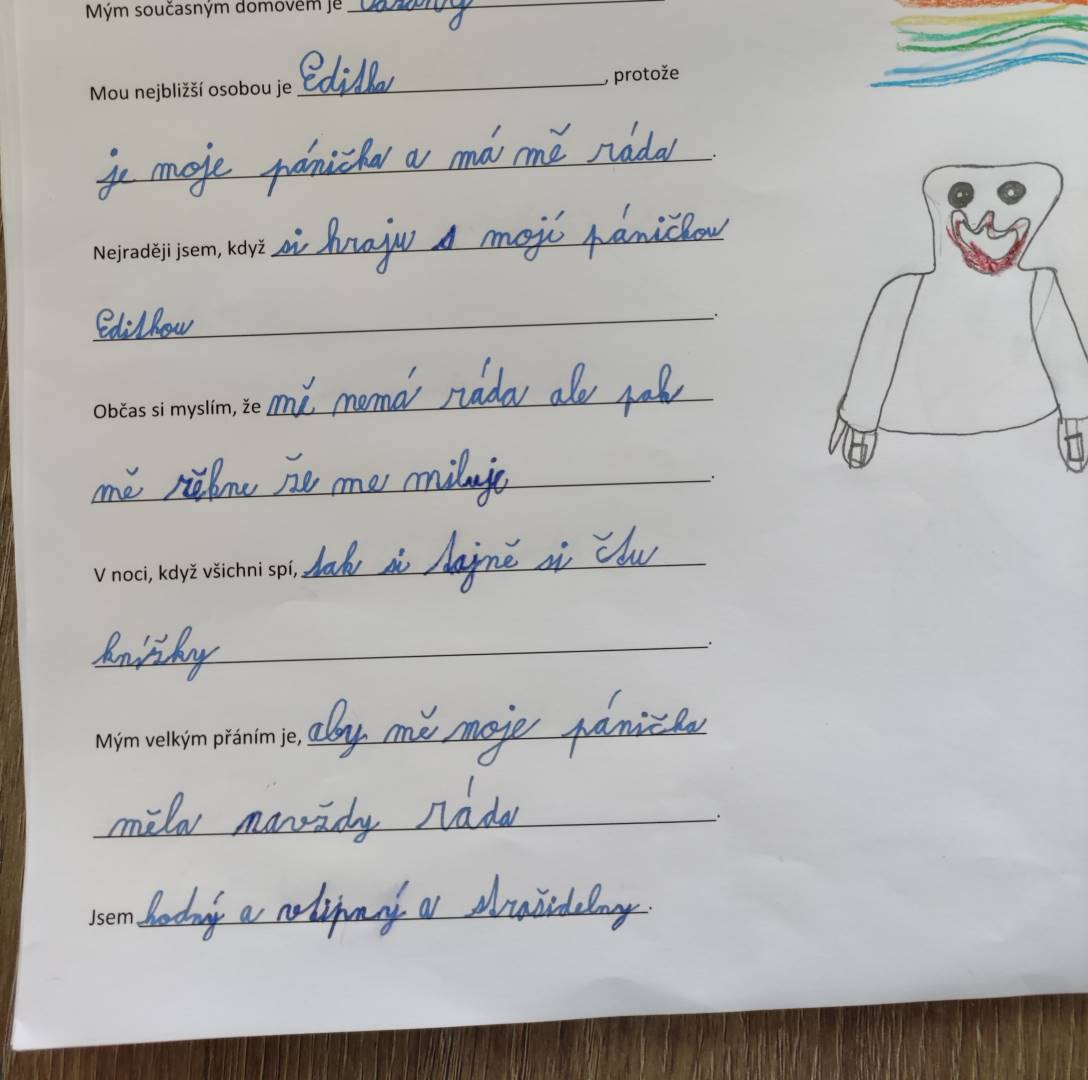 Mým současným domovem je
Mou nejbližší osobou je Editka, protože
je moje pánička a má mě ráda.
Nejraději jsem, když si hraju s mojí páničkou
Editkou.
Občas si myslím, že mě nemá ráda ale pak
mě řěkne že me miluje.
V noci, když všichni spí, tak si tajně si čtu
knížky.
Mým velkým přáním je, aby mě moje pánička
měla navždy ráda.
Jsem hodný a vtipný a strašidelny.